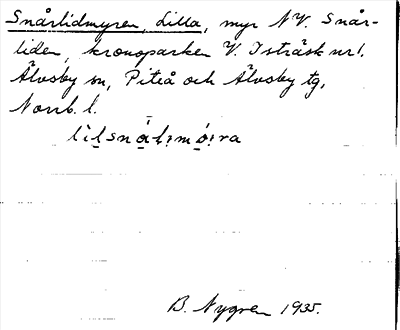 Snårlidmyren, Lilla, myr NV. Snår-
liden, kronoparken V. Isträsk nr 1.
Älvsby sn, Piteå och Älvsby tg,
Norrb. l.
B. Nygren 1935.